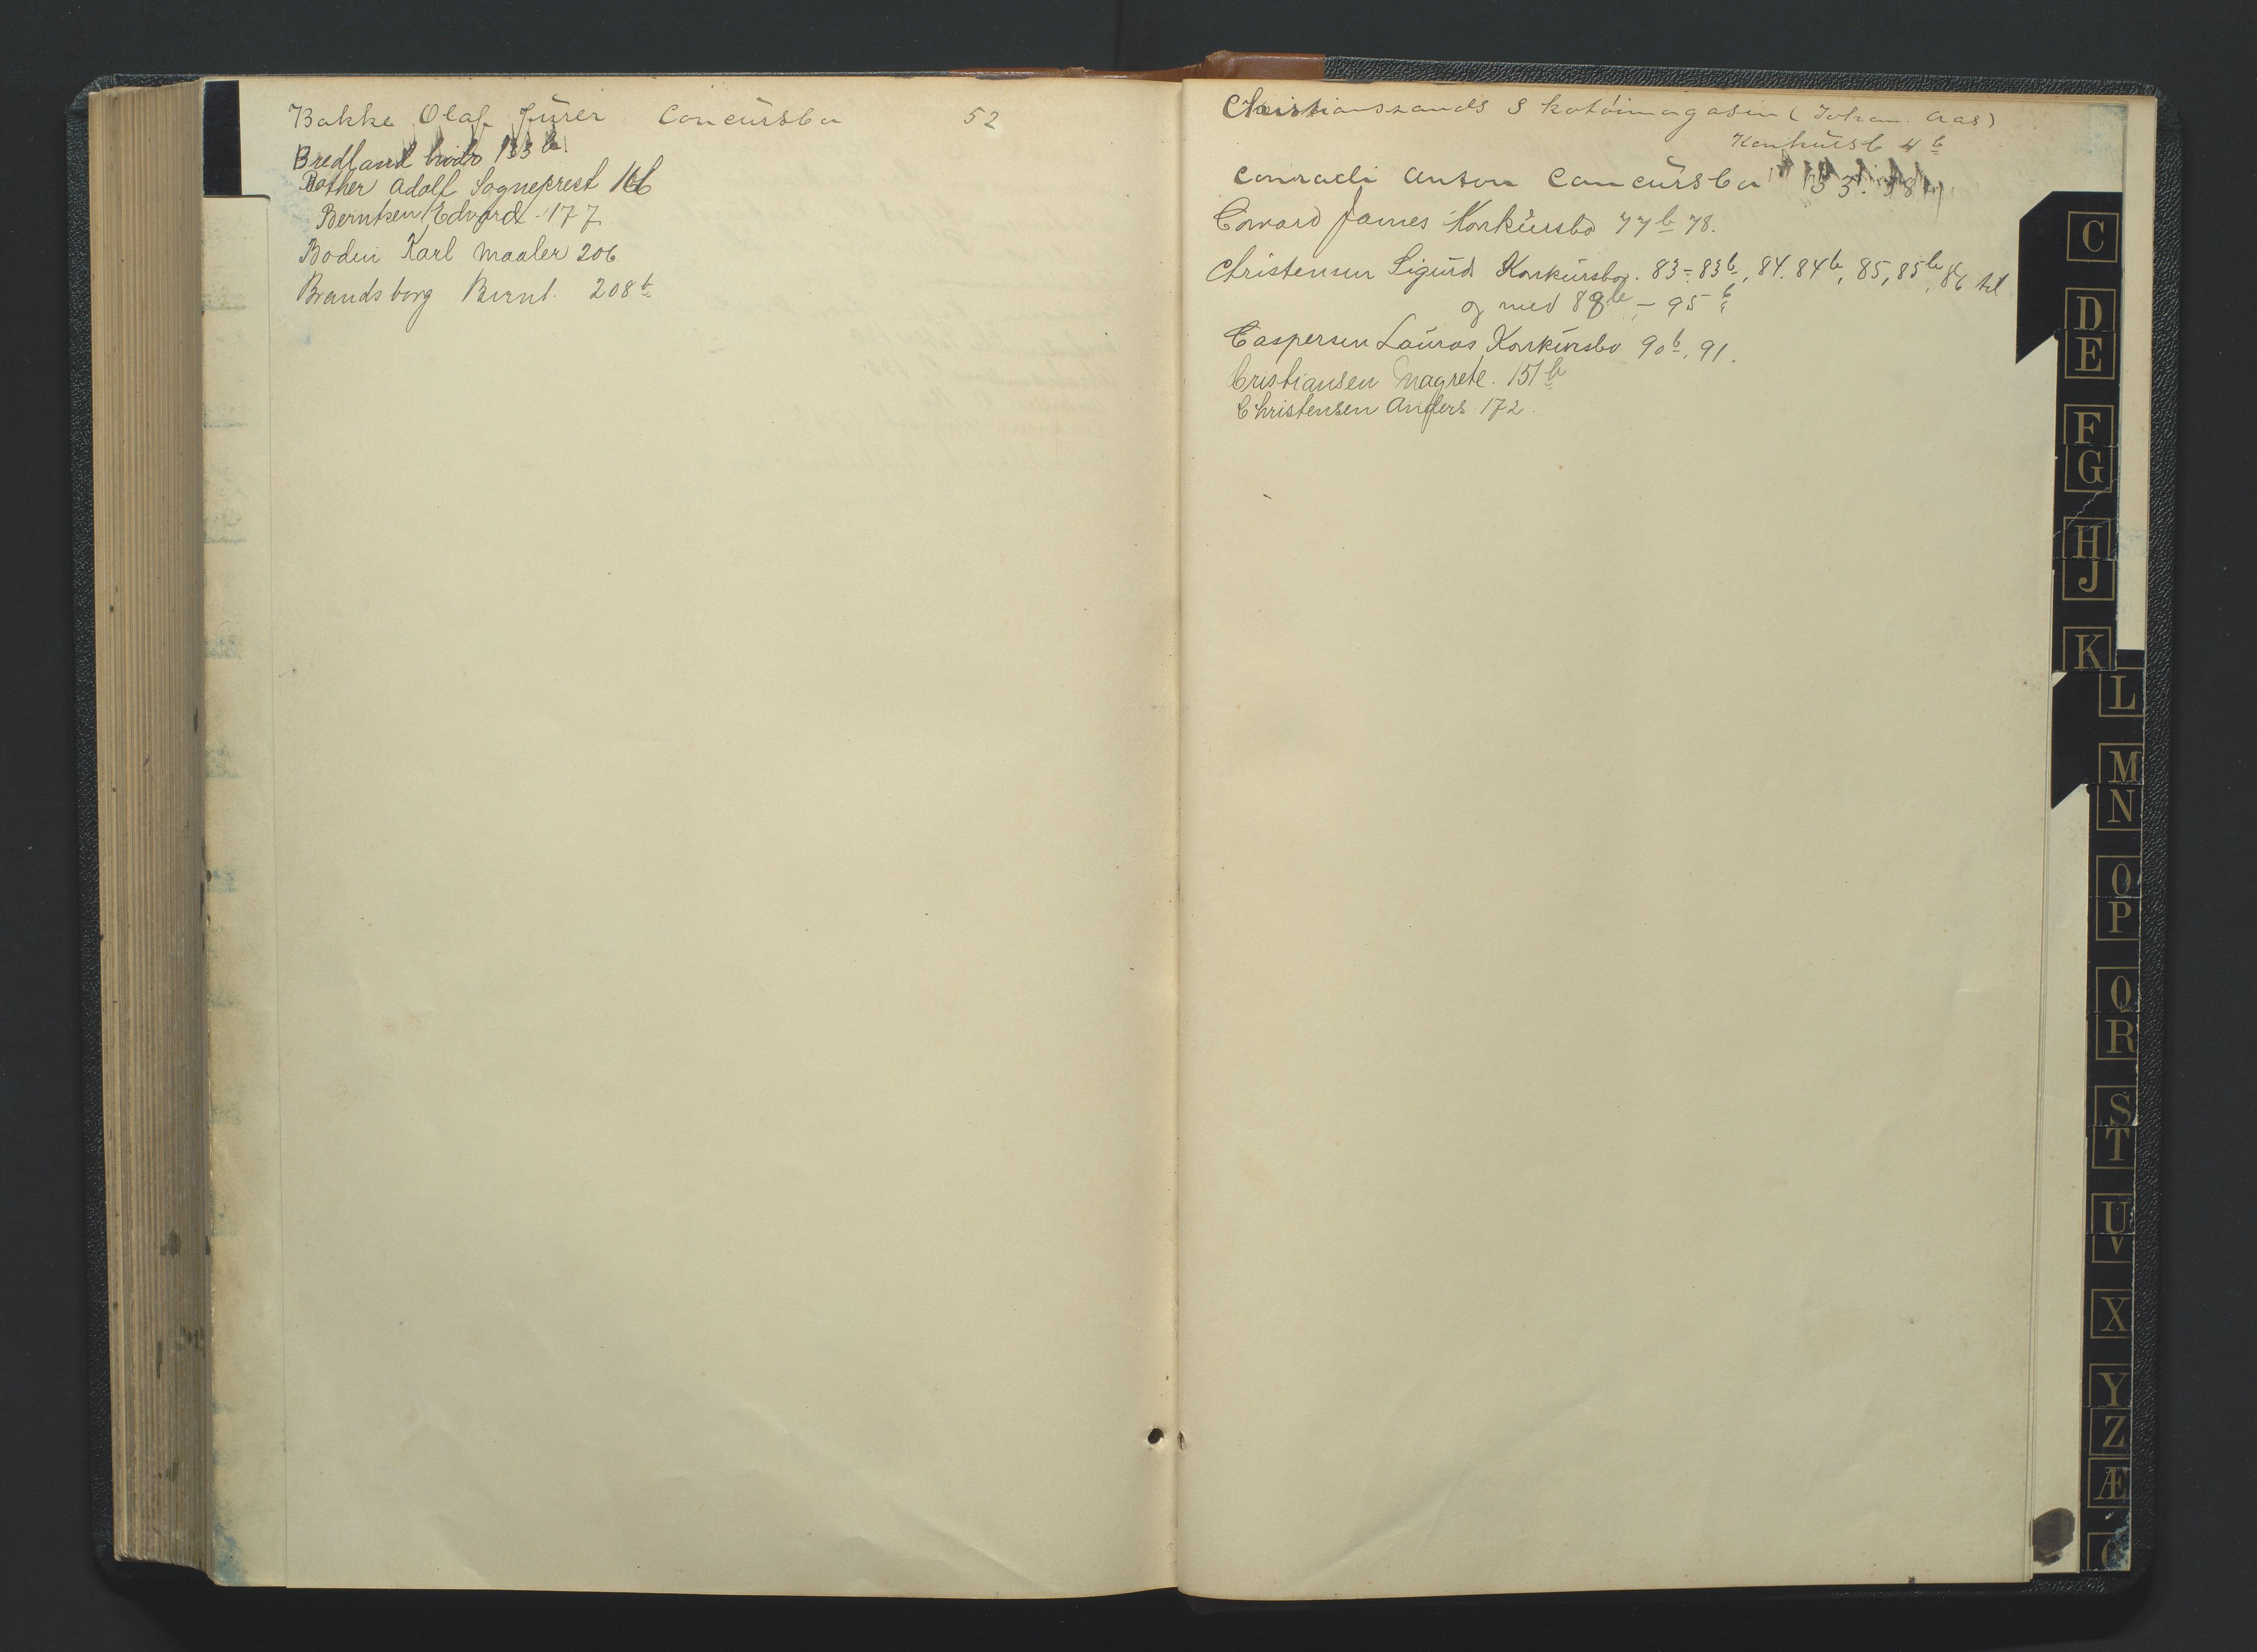 Bakke Olaf Fürer Concürsbo 52
Bredland brødr 133 b
Bother Adolf Sogneprest 166
Berntsen Edvard - 177
Boden Karl Maaler 206.
Brandsborg Bernt. 208 b
Christianssands Skotöimagasin (Johan Aas)
Konkürsb 4 b
Conradi Anton Concürsbo 33.
Coward James Konkürsbo 77 b 78.
Christensen Sigürd Konkürsbo. 83 - 83 b, 84. 84 b, 85, 85 b, 86 til
og med 89 b - 95 b
Caspersen Laüras Konkürsbo 90 b, 91.
Cristiansen Magrete. 151 b
Christensen Anders 172.
C
D
E
F
G
H
J
K
L
M
N
O
P
Q
R
S
T
U
V
X
Y
Z
Æ